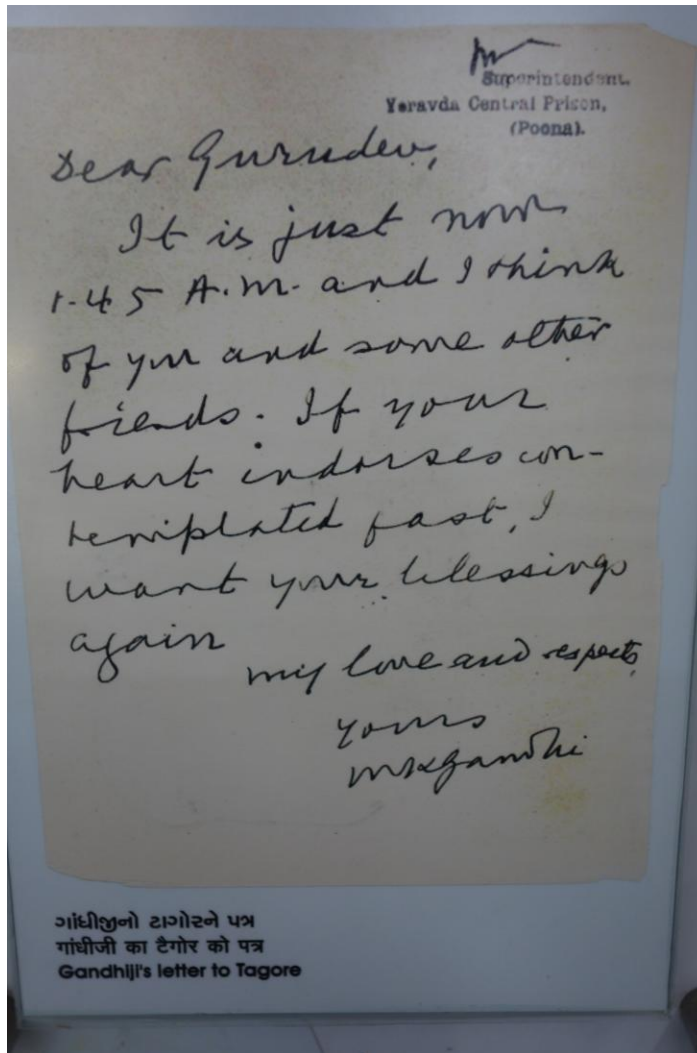 Superintendent.
Yeravda Central Prison,
(Poona).
Dear Gurudev,
It is just now
1.45 A.M. and I think
of you and some other
friends. If your
heart indorses con-
templated fast, I
want your blessings
again
my love and respects,
yours
MKGandhi
ગાંધીજીનો ટાગોરને પત્ર
गांधीजी का टैगोर को पत्र
Gandhiji's letter to Tagore